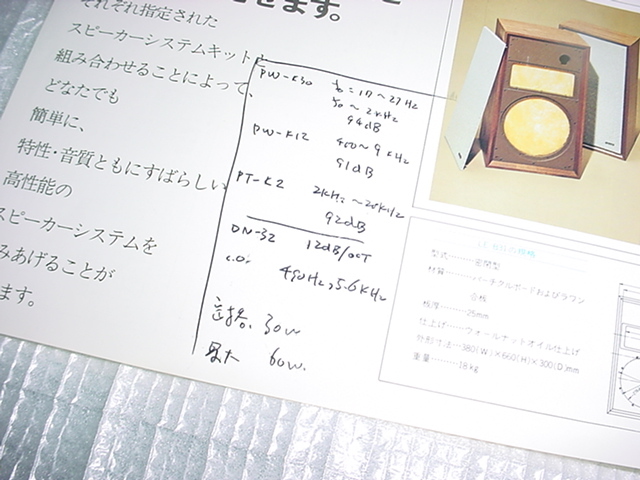 それぞれ指定された
せます。
スピーカーシステムキットと
組み合わせることによって、
どなたでも
簡単に、
特性・音質ともにすばらしい
高性能の
スピーカーシステムを
みあげることが
ます。
PW-K30 fo=17~27Hz
50~2KHz
94dB
PW-K12 400~9KHz
91dB
PT-K2 2KHz~20KHz
92dB
DN-32 12dB/OCT
C.O. 490Hz, 5.6KHz
30W
最大 60W.
型式 密閉型
材質 パーチクルボードおよびラワン
合板
板厚 25mm
仕上げ ウォールナットオイル仕上げ
外形寸法 380(W)×660(H)×300(D)mm
重量 18kg